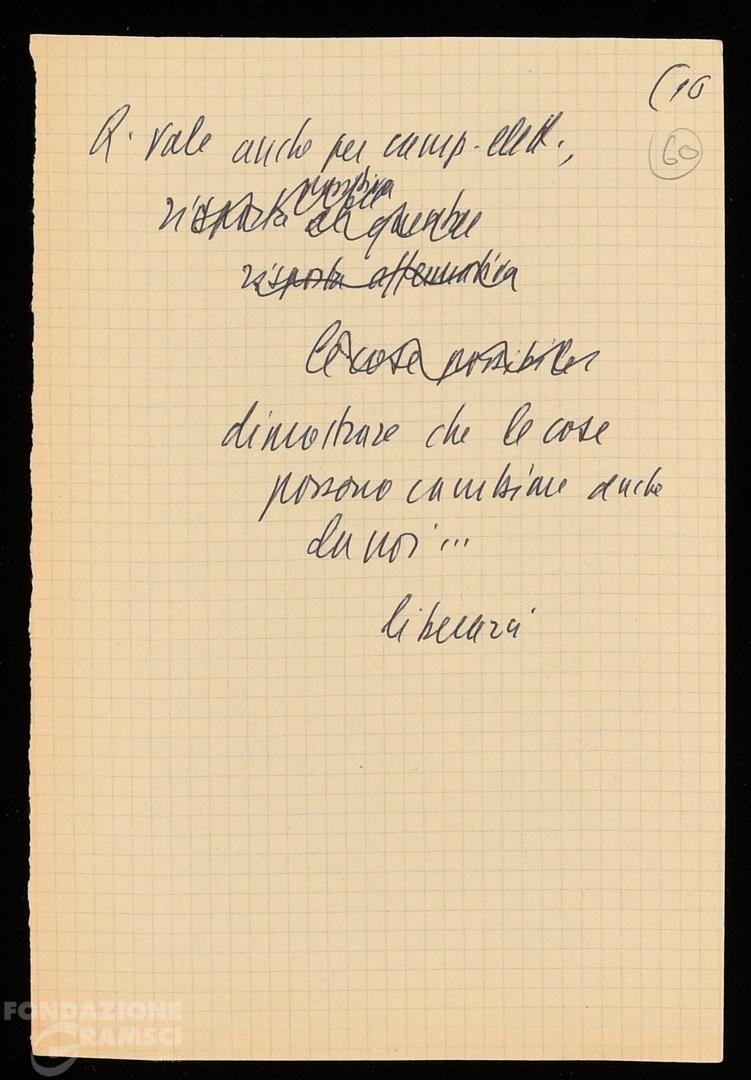 (10
60
Q. vale anche per camp. elett.,
risposta
risposta affermativa
le cose possibili
dimostrare che le cose
possono cambiare anche
da noi...
liberarsi
FONDAZIONE
GRAMSCI